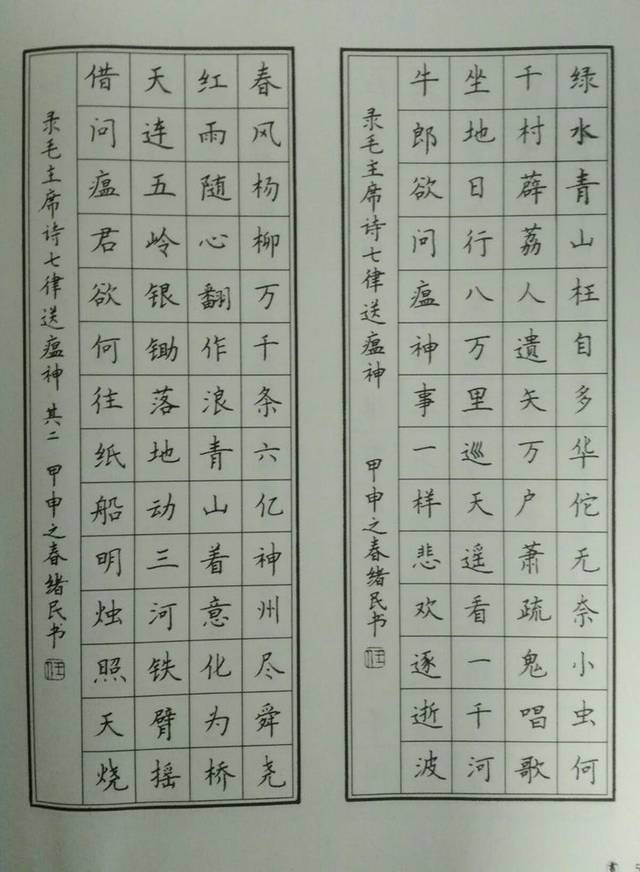 绿水青山枉自多华佗无奈小虫何
千村薜荔人遗矢万户萧疏鬼唱歌
坐地日行八万里巡天遥看一千河
牛郎欲问瘟神事一样悲欢逐逝波
录毛主席诗七律送瘟神 甲申之春绪民书
春风杨柳万千条六亿神州尽舜尧
红雨随心翻作浪青山着意化为桥
天连五岭银锄落地动三河铁臂摇
借问瘟君欲何往纸船明烛照天烧
录毛主席诗七律送瘟神 其二 甲申之春绪民书